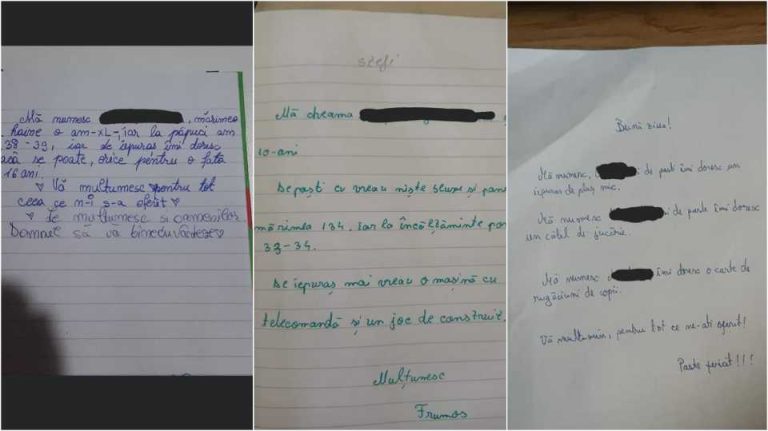 Mă numesc , mărimea
haine o am-XL-, iar la păpuci am
38-39, iar de iepuraș îmi doresc
dacă se poate, orice pentru o fată
16 ani.
♥ Vă mulțumesc ♥ pentru tot
ceea ce n-i s-a oferit ♥
♥ Le mulțumesc si oamenilor
Domnul să vă binecuvânteze♥
stefi
Mă cheama
10-ani
De paști eu vreau niște blure și pan
mărimea 134. Iar la încălțăminte por
33-34.
De iepuraș mai vreau o mașină cu
telecomandă și un joc de construit.
Mulțumesc
Frumos
Bună ziua!
Mă numesc, și de paști îmi doresc un
iepuraș de pluș mic.
Mă numesc și de paște îmi doresc
un cățel de jucărie.
Mă numesc îmi doresc o carte de
rugăciuni de copii.
Vă mulțumim, pentru tot ce ne-ați oferit!
Paște fericit!!!